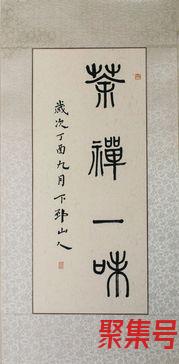 茶禪一味
歲次丁酉九月下邳山人
聚集号